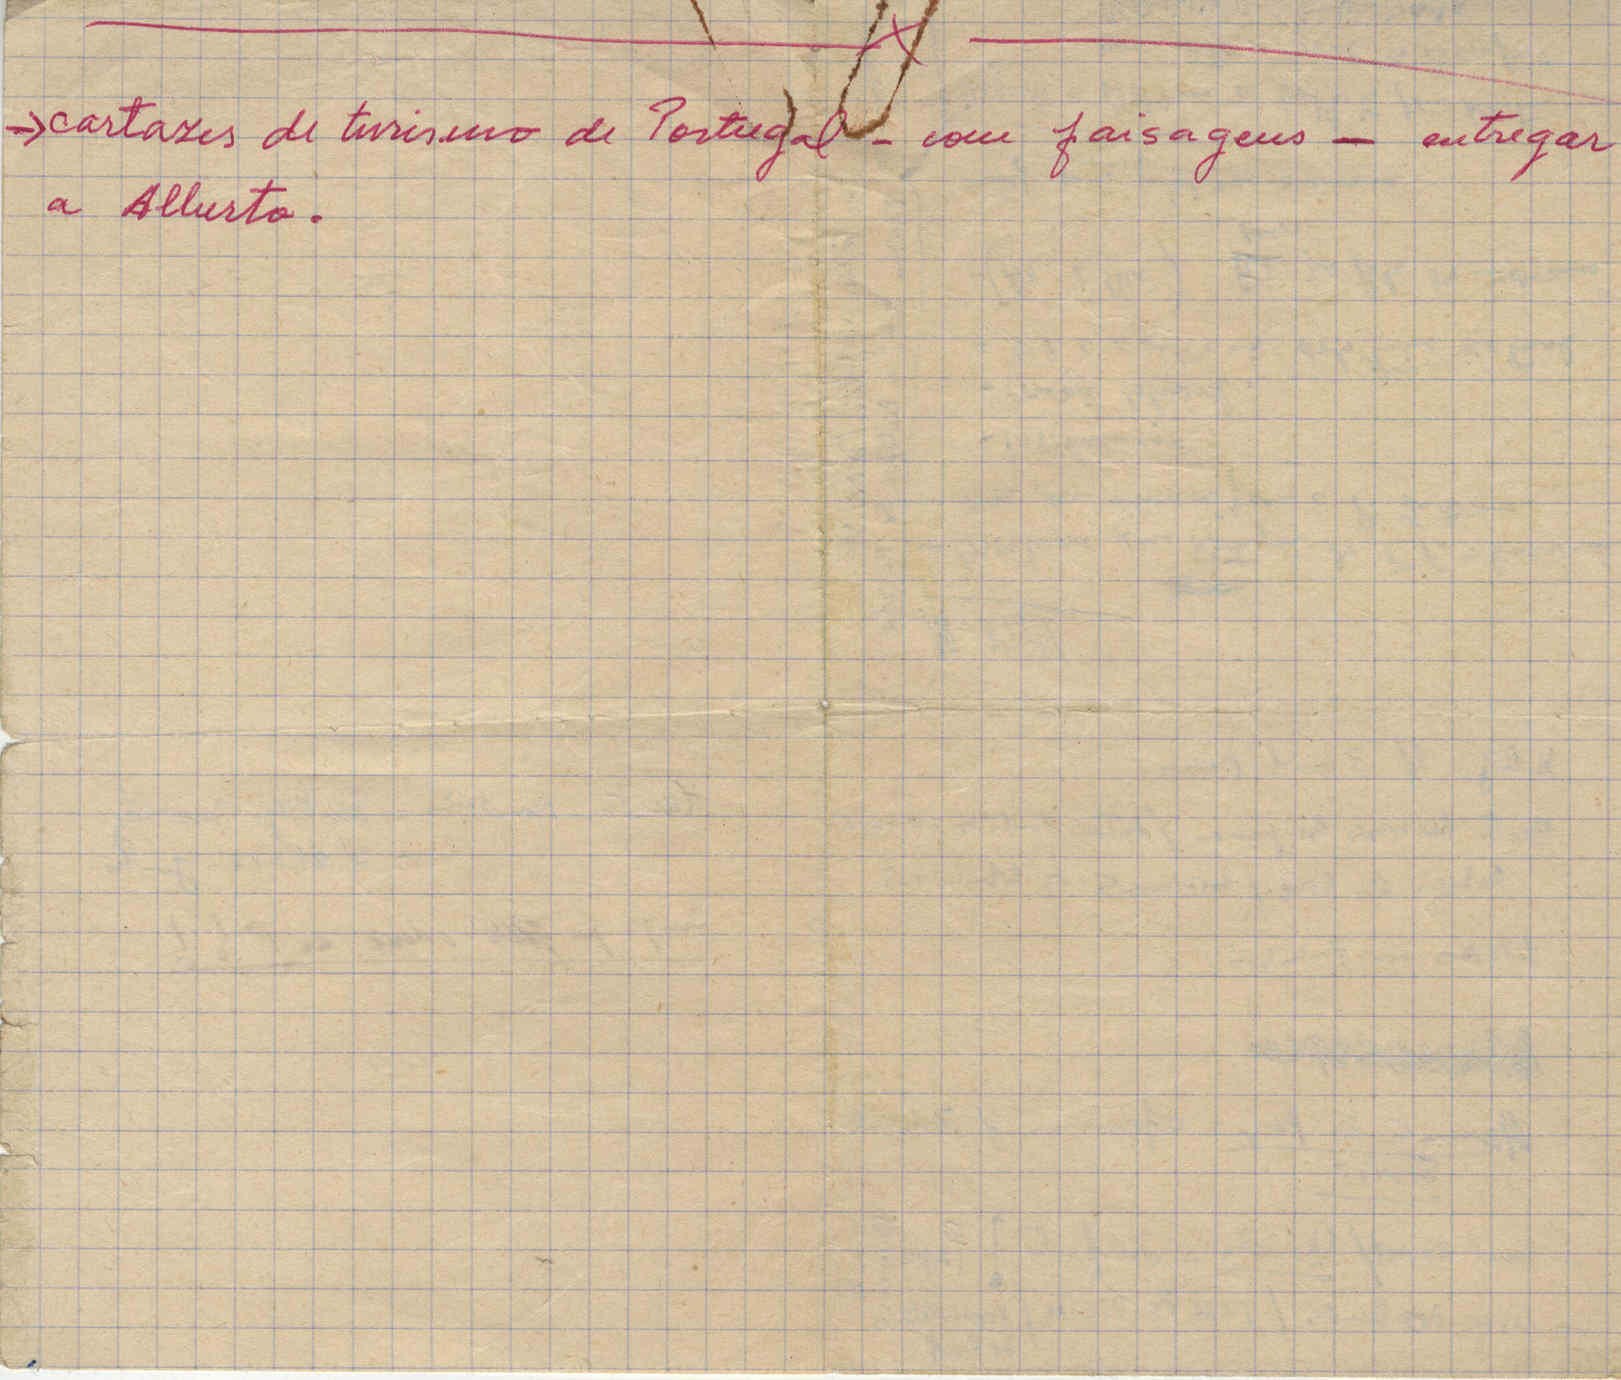 → cartazes de turismo de Portugal - com paisagens — entregar
a Alberto.